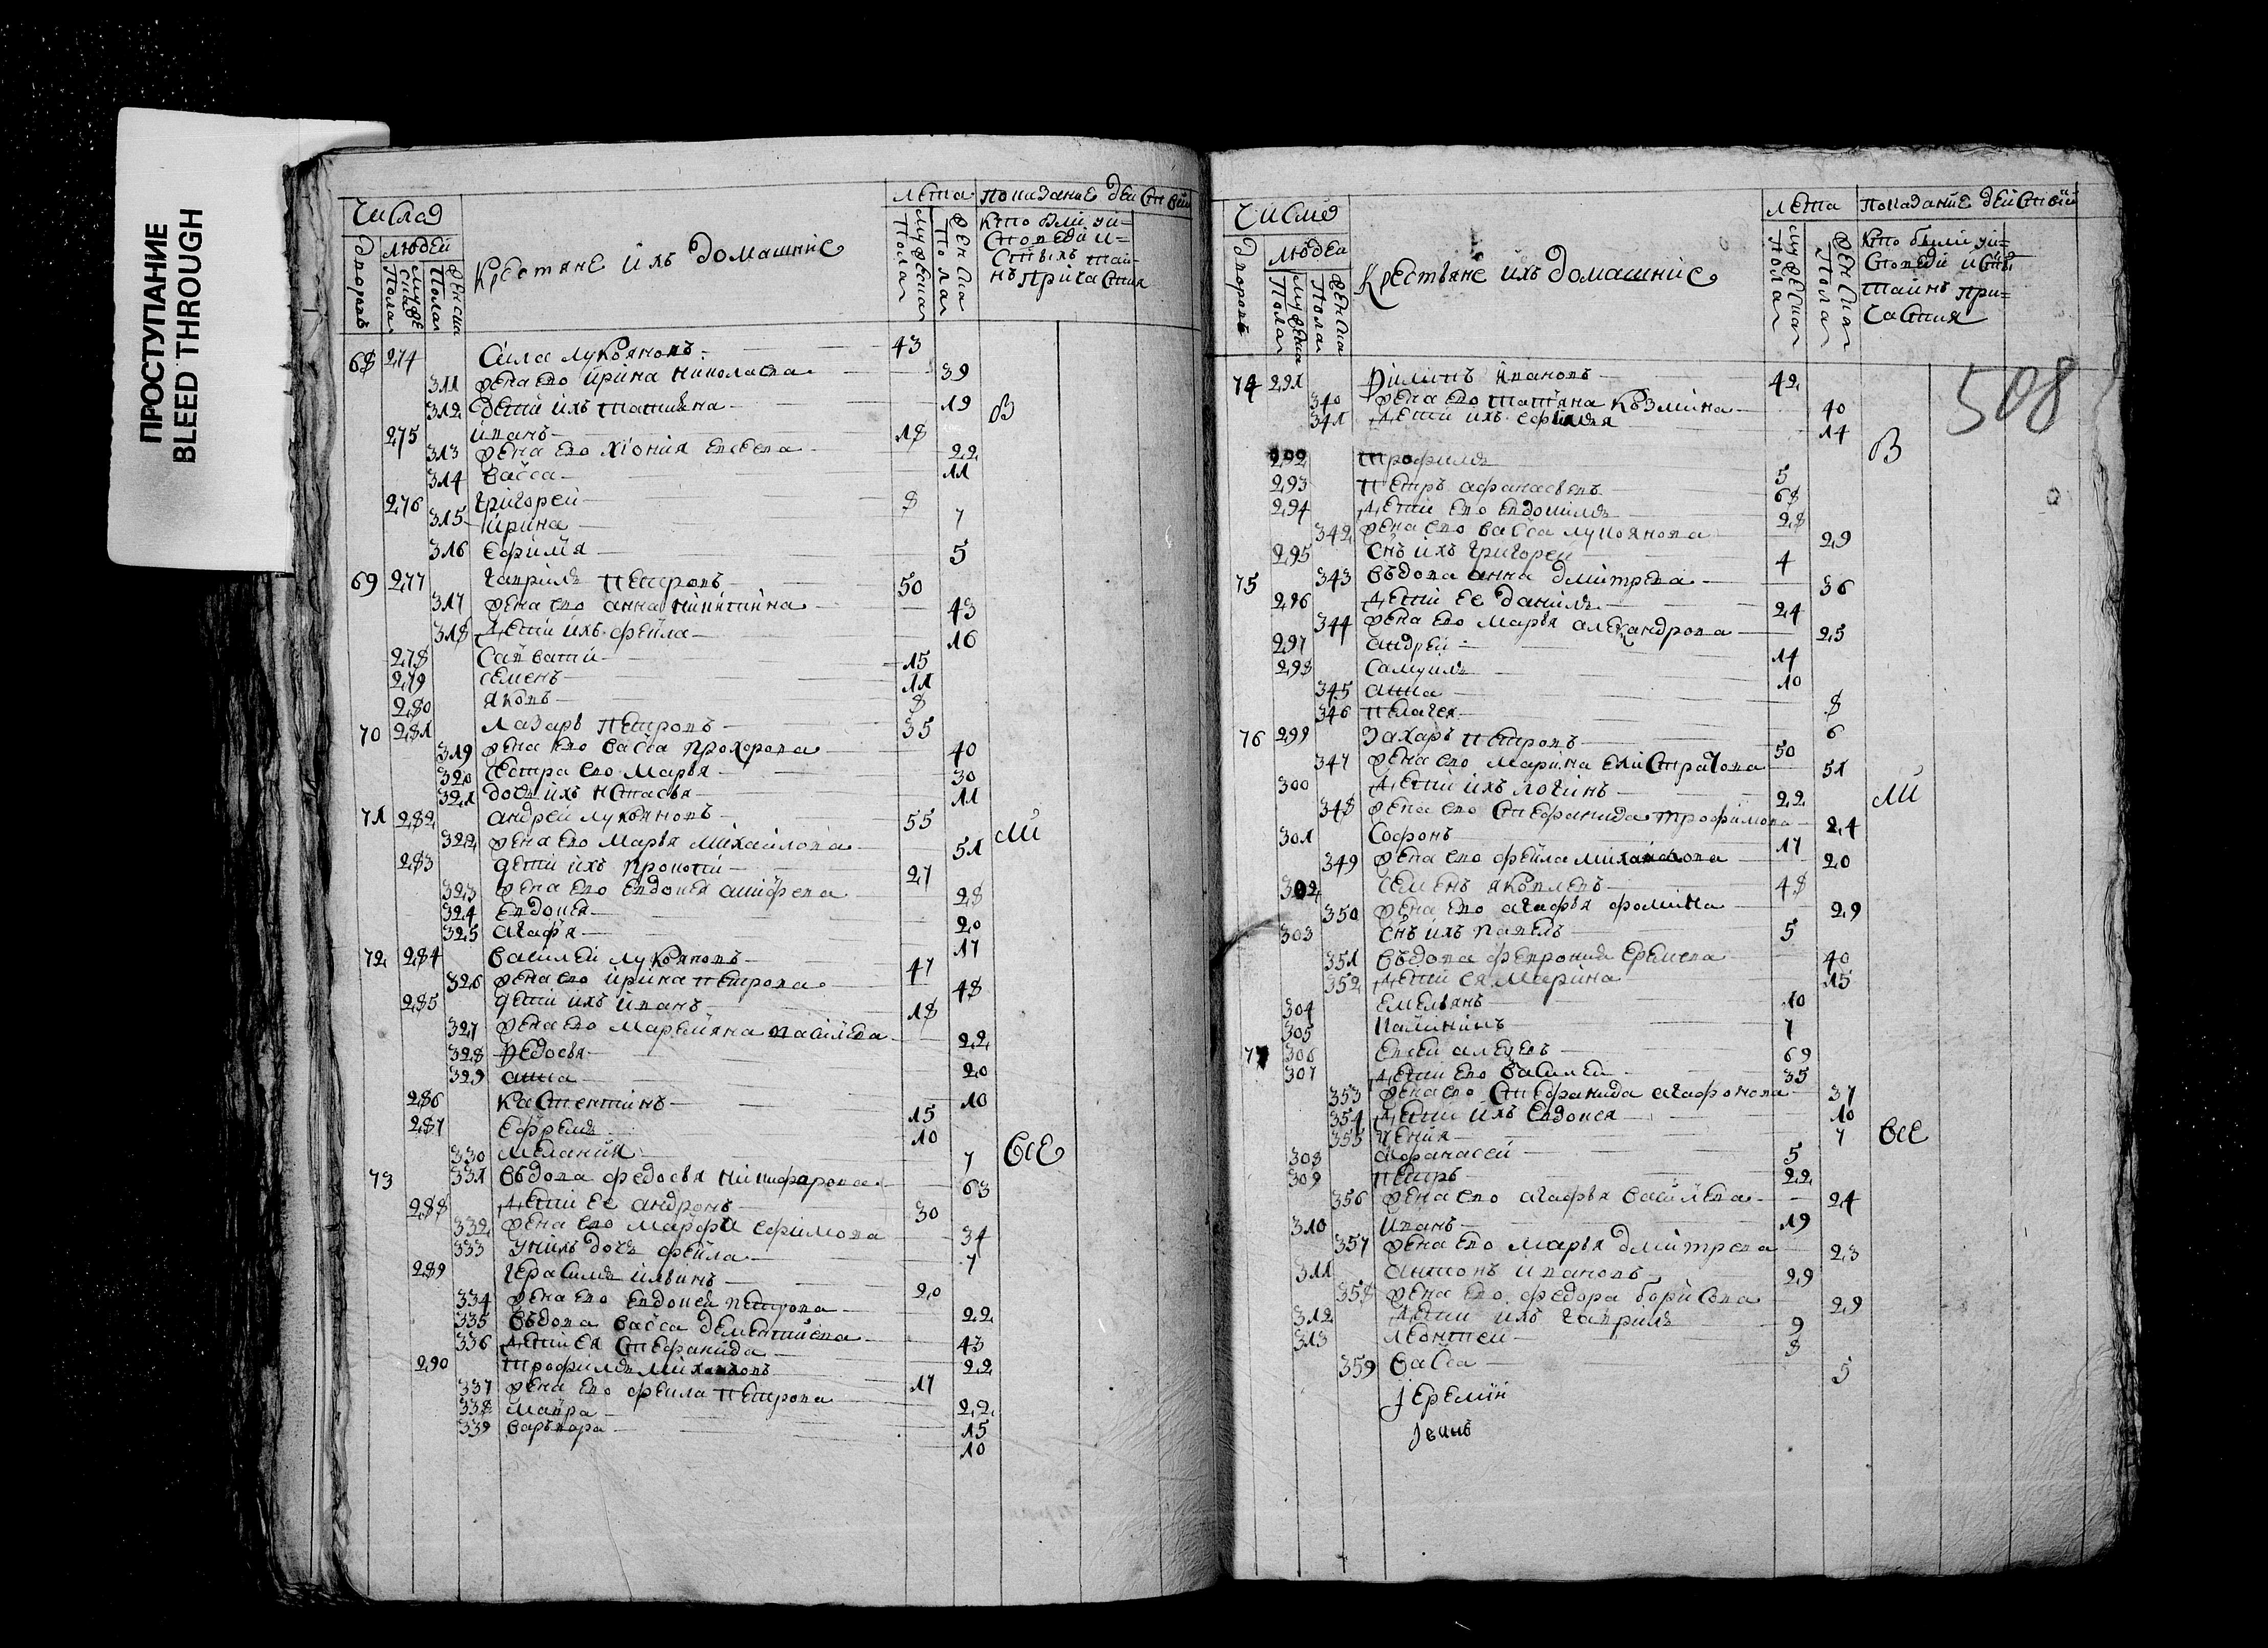 ПРОСТУПАНИЕ
BLEED THROUGH
Числа
лета Показание действий
дворовъ
людей
мужеска Пола
женска Пола
Крестяне ихъ домашние
мужеска Пола
женска Пола
Кто были у и=
споведи и=
Святыхъ тай=
нъ причастия
68 274 Сила лукьяновъ 43
311 жена ево ирина николаева 39
312 дети ихъ татияна 19 В
275 иванъ 18
313 жена ево хиония евсева 22
314 васса 11
276 григорей 8
315 ирина 7
316 ефимия 5
69 277 гаврила петровъ 50
317 жена ево анна никитина 43
318 дети ихъ фекла 16
278 Савватий 15
279 семенъ 11
280 яковъ 8
70 281 лазарь петровъ 35
319 жена ево васса прохорова 40
320 сестра ево марья 30
321 дочь ихъ настасья 11
71 282 андрей лукьяновъ 55
322 жена ево марья михайлова 51 сли
283 дети ихъ прокопий 27
323 жена ево евдокея 28
324 евдокея 20
325 агафья 17
72 284 василей лукьяновъ 47
326 жена ево ирина петрова 48
285 дети ихъ иванъ 18
327 жена ево маремияна василева 22
328 федосья 20
329 анна 10
286 Костентинъ 15
287 ефремъ 10
330 мелания 7 Все
73 331 въдова федосья никифорова 63
288 дети ее андронъ 30
332 жена ево марфа ефимова 34
333 у нихъ дочь фекла 7
289 герасимъ ильинъ 20
334 жена ево евдокея петрова 22
335 въдова васса дементиева 43
336 дети ея стефанида 22
290 трофимъ михайловъ 17
337 жена ево фекла петрова 22
338 мавра 15
339 варъвара 10
Числа
лета Показание действий
дворовъ
людей
мужеска Пола
женска Пола
Крестьяне ихъ домашние
мужеска Пола
женска Пола
Кто были у и=
споведи и Святыхъ
тайнъ при=
частия
508
74 291 Филипъ ивановъ 42
340 жена ево татьяна козмина 40
341 дети ихъ ефимия 14
В
292 трофимъ 5
293 петръ афанасьевъ 68
294 дети ево евдокимъ 28
342 жена ево васса лукоянова 29
295 снъ ихъ григорей 4
75 343 въдова анна дмитрева 36
296 дети ее данила 24
344 жена ево марья александрова 25
297 андрей 14
298 самуилъ 10
345 анна 8
346 пелагея 6
76 299 захаръ петровъ 50
347 жена ево марина елистратова 51
300 дети ихъ логинъ 22 сли
348 жена ево стефанида трофимова 24
301 Софонъ 17
349 жена ево фекла михайлова 20
302 семенъ яковлевъ 48
350 жена ево агафья фомина 29
303 снъ ихъ павелъ 5
351 въдова феврония еремева 40
352 дети ея марина 15
304 емельянъ 10
305 калининъ 7
77 306 евсей алексеевъ 69
307 дети ево василей 35
353 жена ево стефанида агафонова 37
354 дети ихъ евдокея 10
355 ксения 7 все
308 афанасей 5
309 петръ 22
356 жена ево агафья василева 24
310 иванъ 19
357 жена ево марья дмитрева 23
311 антонъ ивановъ 29
358 жена ево федора борисова 29
312 дети ихъ гаврила 9
313 леонтей 8
359 васса 5
Иеремий
Иванъ